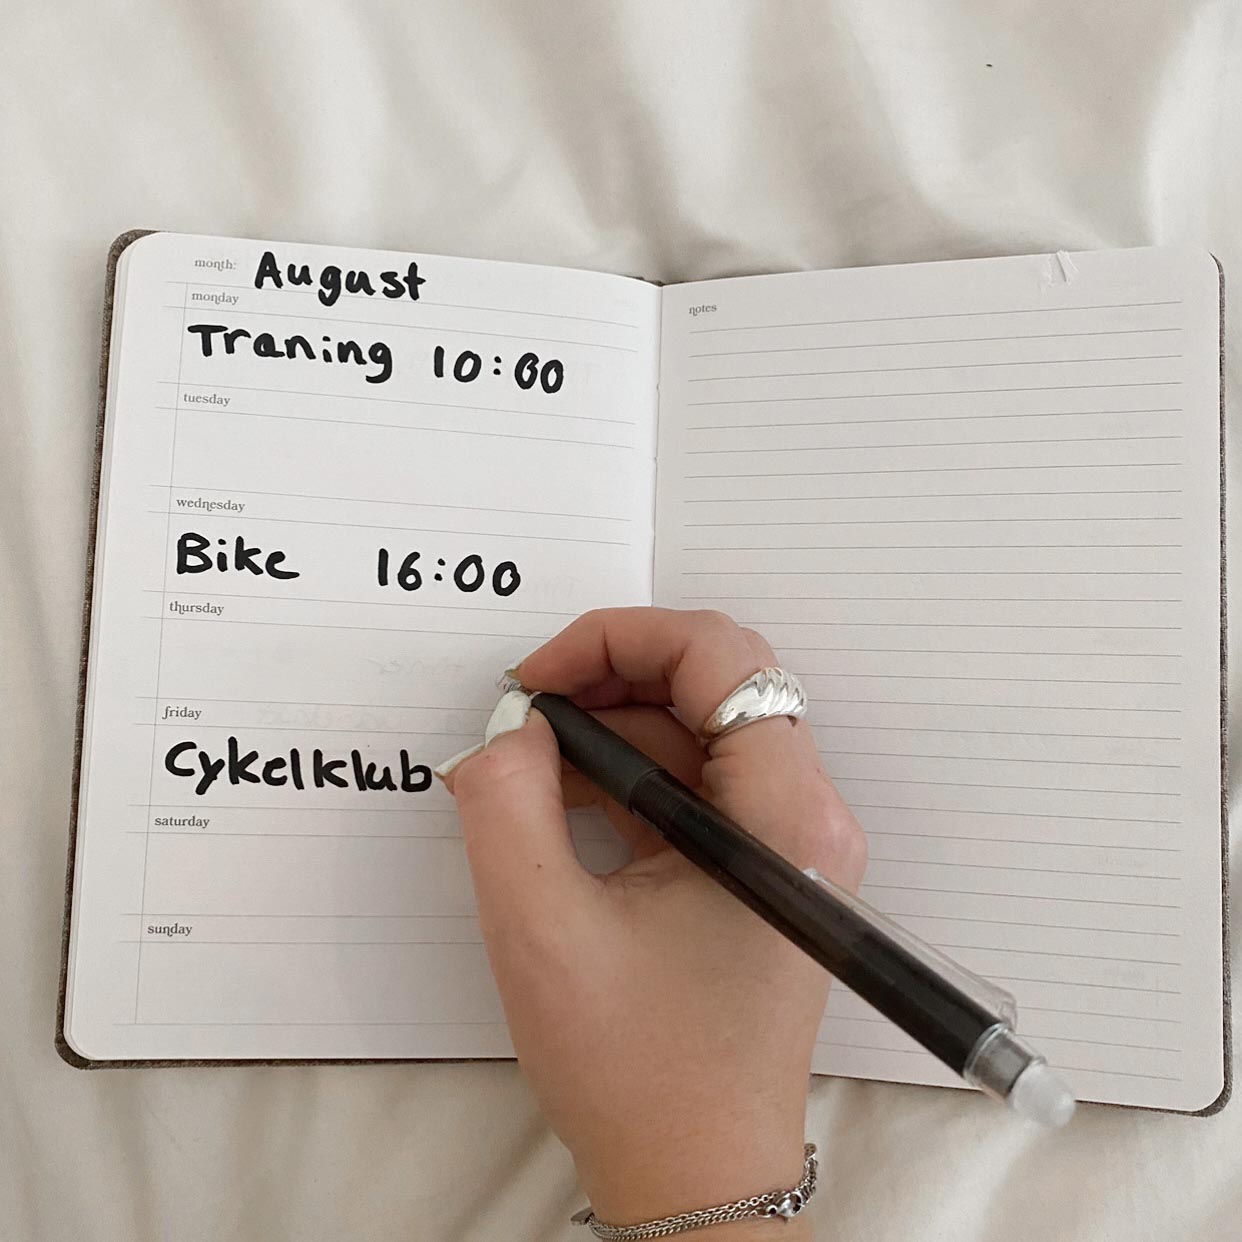 month: August
monday
Traning 10:00
tuesday
wednesday
Bike 16:00
thursday
friday
Cykelklub
saturday
sunday
notes